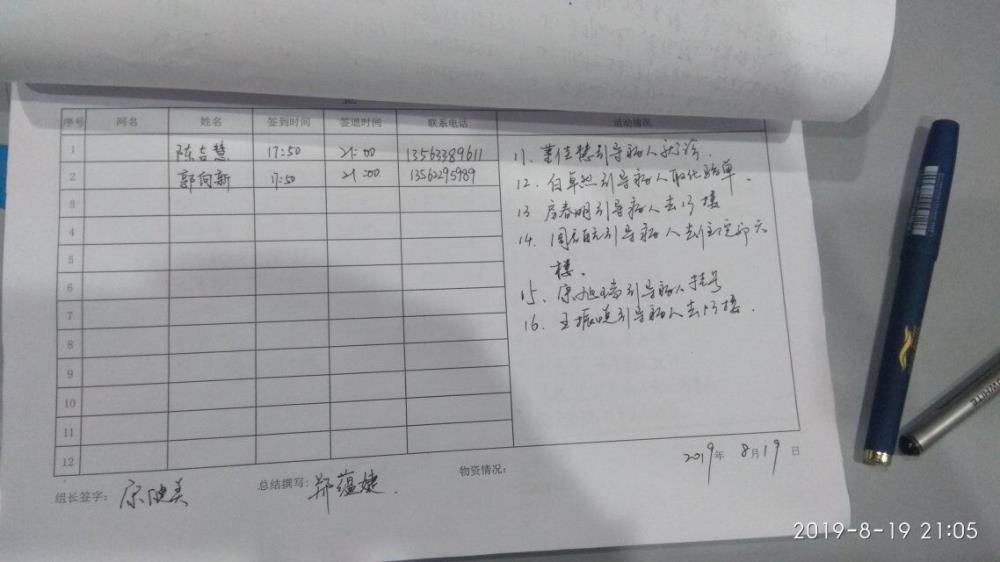 序号 网名 姓名 签到时间 签退时间 联系电话 活动情况
1 陈吉慧 17:50 21:00 13563389611
2 郭向新 17:50 21:00 13562295989
3
4
5
6
7
8
9
10
11
12
11、董佳慧引导病人就诊.
12、白卓然引导病人取化验单.
13 房春明引导病人去13楼
14、引导病人去住院部六
楼.
15、引导病人挂号
16、王振 引导病人去13楼.
组长签字: 康 美
总结撰写: 郑蕴婕.
物资情况:
2019年 8月19日
2019-8-19 21:05